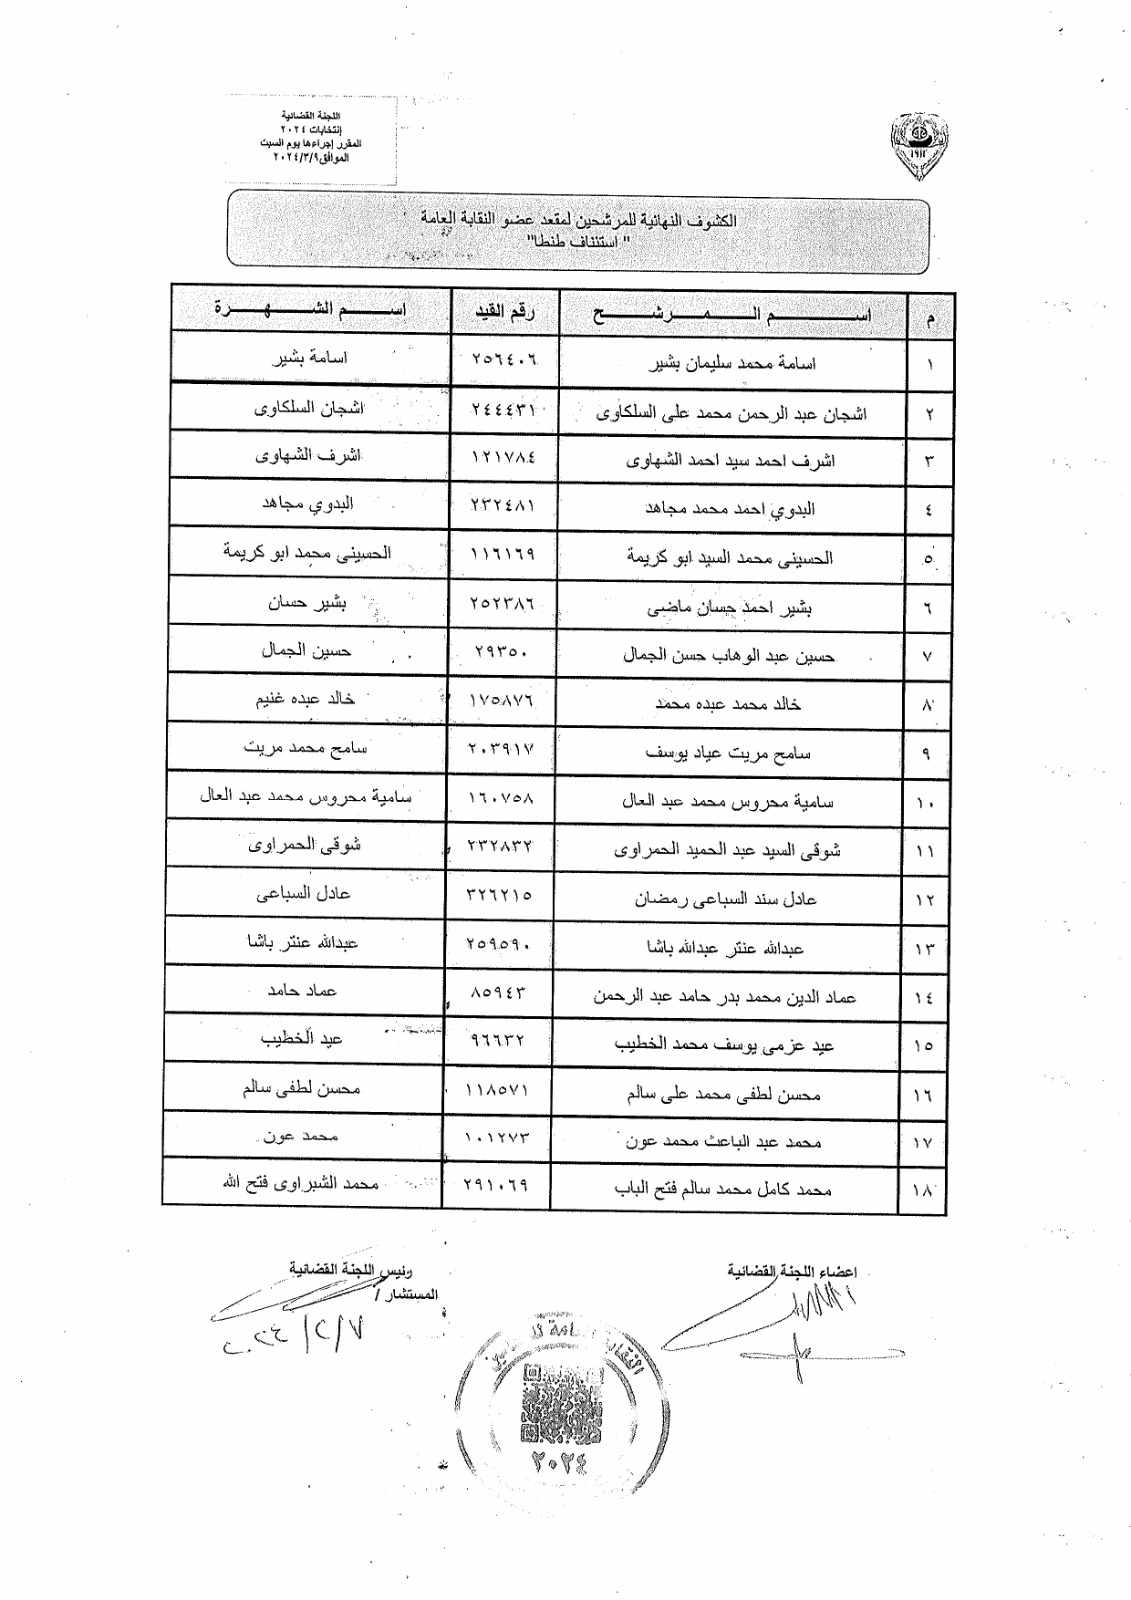 اللجنة القضائية
إنتخابات ٢٠٢٤
المقرر إجراءها يوم السبت
الموافق ٢٠٢٤/٣/٩
١٩١٢
الكشوف النهائية للمرشحين لمقعد عضو النقابة العامة
" استئناف طنطا"
م اســم المــرشــح رقم القيد اســم الشــهــرة
١ اسامة محمد سليمان بشير ٢٥٦٤٠٦ اسامة بشير
٢ اشجان عبد الرحمن محمد على السلكاوى ٢٤٤٤٣١ اشجان السلكاوى
٣ اشرف احمد سيد احمد الشهاوى ١٢١٧٨٤ اشرف الشهاوى
٤ البدوي احمد محمد مجاهد ٢٣٢٤٨١ البدوي مجاهد
٥ الحسينى محمد السيد ابو كريمة ١١٦١٦٩ الحسينى محمد ابو كريمة
٦ بشير احمد حسان ماضى ٢٥٢٣٨٦ بشير حسان
٧ حسين عبد الوهاب حسن الجمال ٢٩٣٥٠ حسين الجمال
٨ خالد محمد عبده محمد ١٧٥٨٧٦ خالد عبده غنيم
٩ سامح مريت عياد يوسف ٢٠٣٩١٧ سامح محمد مريت
١٠ سامية محروس محمد عبد العال ١٦٠٧٥٨ سامية محروس محمد عبد العال
١١ شوقى السيد عبد الحميد الحمراوى ٢٣٢٨٣٢ شوقى الحمراوى
١٢ عادل سند السباعى رمضان ٣٢٦٢١٥ عادل السباعى
١٣ عبدالله عنتر عبدالله باشا ٢٥٩٥٩٠ عبدالله عنتر باشا
١٤ عماد الدين محمد بدر حامد عبد الرحمن ٨٥٩٤٣ عماد حامد
١٥ عيد عزمى يوسف محمد الخطيب ٩٦٦٣٢ عيد الخطيب
١٦ محسن لطفى محمد على سالم ١١٨٥٧١ محسن لطفى سالم
١٧ محمد عبد الباعث محمد عون ١٠١٢٧٣ محمد عون
١٨ محمد كامل محمد سالم فتح الباب ٢٩١٠٦٩ محمد الشبراوى فتح الله
اعضاء اللجنة القضائية رئيس اللجنة القضائية
المستشار /
٢٠٢٤/٢/٧
النقابة
٢٠٢٤